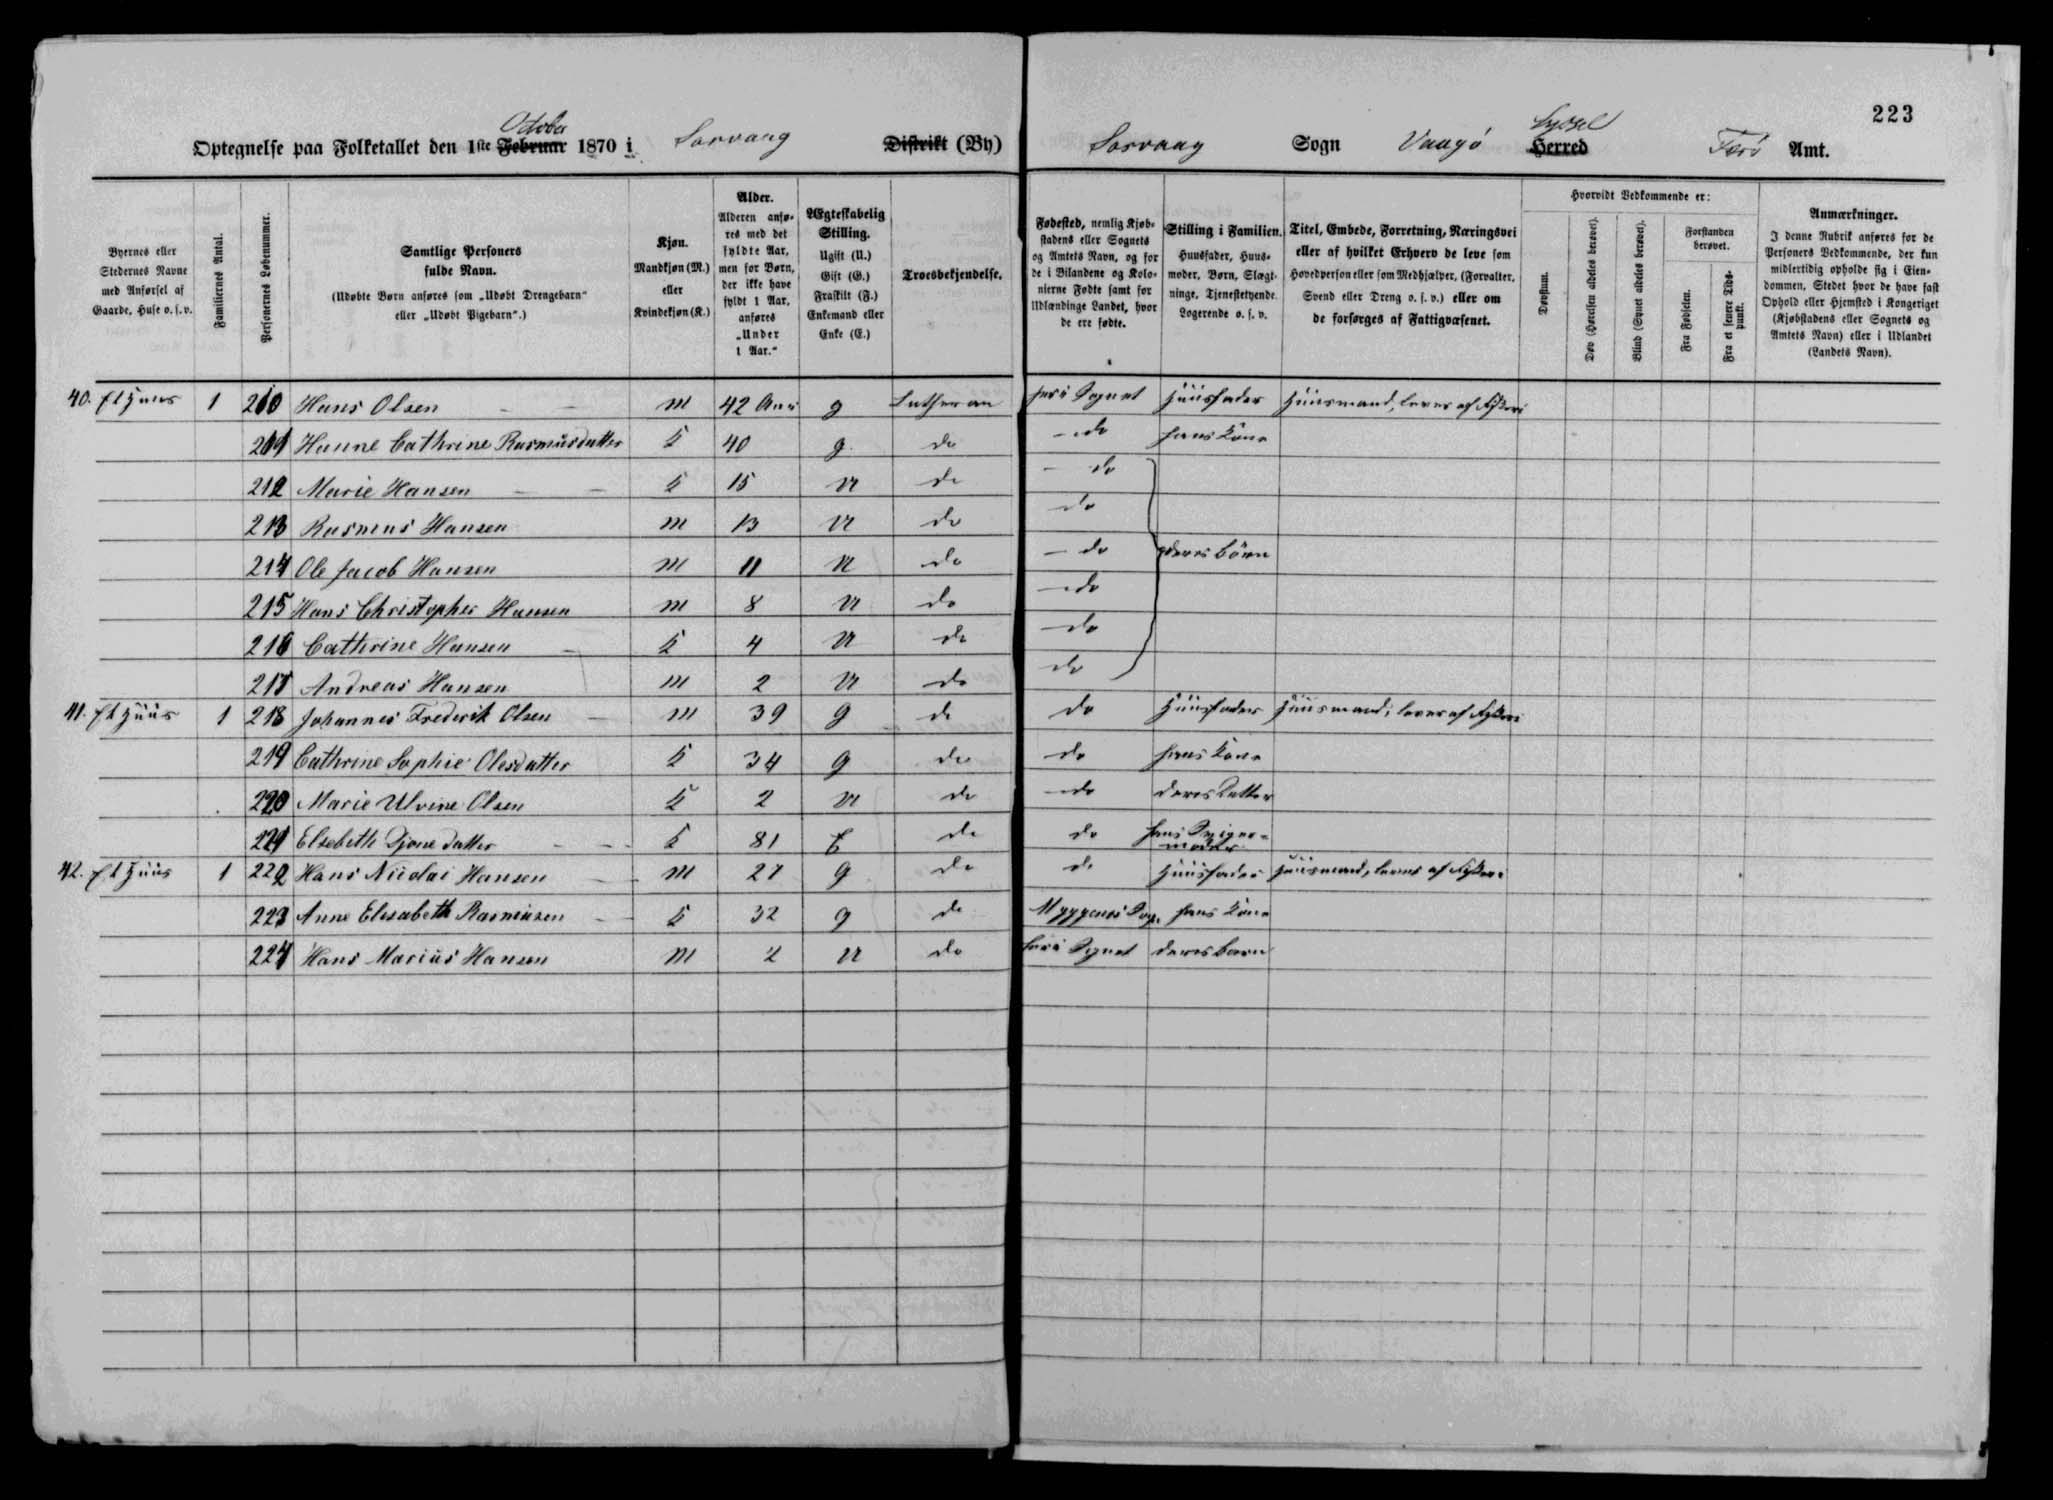 223
October
Optegnelse paa Folketallet den 1ste Februar 1870 i Sorvaag Distrikt (By) Sorvaag Sogn Vaagö Herred Syssel Færö Amt.
Byernes eller Stedernes Navne med Anførsel af Gaarde, Huse o. s. v.
Familiernes Antal.
Personernes Løbenummer.
Samtlige Personers fulde Navn.
(Udøbte Børn anføres som „Udøbt Drengebarn“ eller „Udøbt Pigebarn“.)
Kjøn. Mandkjøn (M.) eller Kvindekjøn (K.)
Alder. Alderen anføres med det fyldte Aar, men for Børn, der ikke have fyldt 1 Aar, anføres „Under 1 Aar.“
Ægteskabelig Stilling. Ugift (U.) Gift (G.) Fraskilt (F.) Enkemand eller Enke (E.)
Troesbekjendelse.
Fødested, nemlig Kjøbstadens eller Sognets og Amtets Navn, og for de i Bilandene og Kolonierne Fødte samt for Udlændinge Landet, hvor de ere fødte.
Stilling i Familien. Huusfader, Huusmoder, Børn, Slægtninge, Tjenestetyende, Logerende o. s. v.
Titel, Embede, Forretning, Næringsvei eller af hvilket Erhverv de leve som Hovedperson eller som Medhjælper, (Forvalter, Svend eller Dreng o. s. v.) eller om de forsørges af Fattigvæsenet.
Hvorvidt Vedkommende er:
Døvstum.
Døv (Hørelsen aldeles berøvet).
Blind (Synet aldeles berøvet).
Forstanden berøvet.
Fra Fødselen.
Fra et senere Tidspunkt.
Anmærkninger.
I denne Rubrik anføres for de Personers Vedkommende, der kun midlertidig opholde sig i Eiendommen, Stedet hvor de have fast Ophold eller Hjemsted i Kongeriget (Kjøbstadens eller Sognets og Amtets Navn) eller i Udlandet (Landets Navn).
40. Et Huus 1 210 Hans Olsen M 42 Aar g Lutheran her i Sognet Huusfader Huusmand, lever af Fiskeri
211 Hanne Cathrine Rasmusdatter K 40 g do do hans Kone
212 Marie Hansen K 15 U do do
213 Rasmus Hansen M 13 U do do
214 Ole Jacob Hansen M 11 U do do deres Börn
215 Hans Christopher Hansen M 8 U do do
216 Cathrine Hansen K 4 U do do
217 Andreas Hansen M 2 U do do
41. Et Huus 1 218 Johannes Frederik Olsen M 39 g do do Huusfader Huusmand, lever af Fiskeri
219 Cathrine Sophie Olesdatter K 34 g do do hans Kone
220 Marie Ulvine Olsen K 2 U do do deres Datter
221 Elsebeth Djonedatter K 81 E do do hans Svigermoder
42. Et Huus 1 222 Hans Nicolai Hansen M 27 g do do Huusfader Huusmand, lever af Fiskeri
223 Anne Elisabeth Rasmusen K 32 g do Myggenes Sogn hans Kone
224 Hans Marius Hansen M 2 U do her i Sognet deres barn